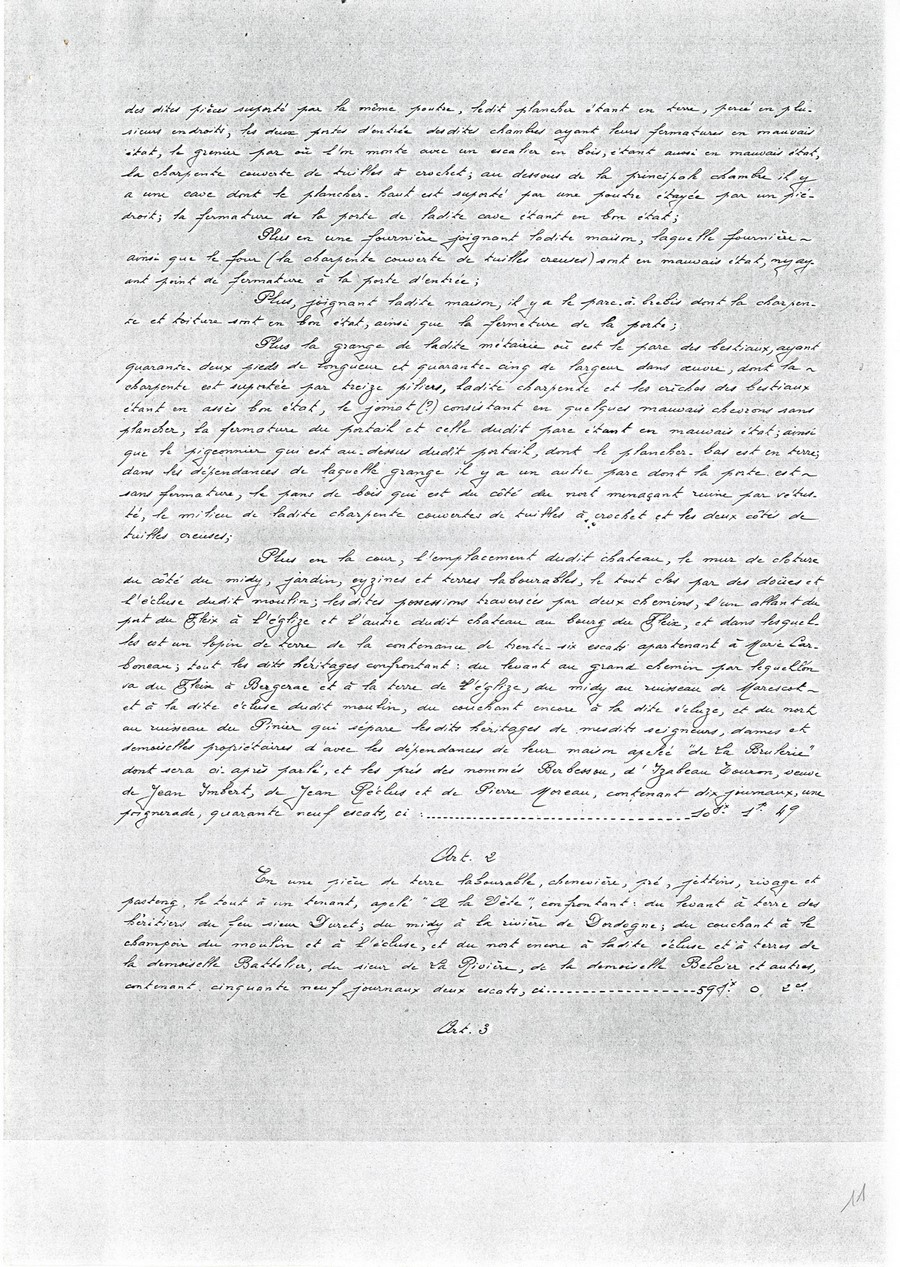 des dites pièces suporté par la même poutre, ledit plancher étant en terre, percé en plu-
sieurs endroits, les deux portes d'entrée desdites chambres ayant leurs fermatures en mauvais
état, le grenier par où l'on monte avec un escalier en bois, étant aussi en mauvais état,
la charpente couverte de tuilles à crochet; au dessous de la principale chambre il y
a une cave dont le plancher-haut est suporté par une poutre étayée par un pié-
droit; la fermature de la porte de ladite cave étant en bon état;
Plus en une fournière joignant ladite maison, laquelle fournière ~
ainsi que le four (la charpente couverte de tuilles creuses) sont en mauvais état, ny ay
ant point de fermature à la porte d'entrée;
Plus, joignant ladite maison, il y a le parc à brebis dont la charpen-
te et toiture sont en bon état, ainsi que la fermeture de la porte;
Plus la grange de ladite métairie où est le parc des bestiaux, ayant
quarante-deux pieds de longueur et quarante-cinq de largeur dans œuvre, dont la ~
charpente est suportée par treize piliers, ladite charpente et les crêches des bestiaux
étant en assès bon état, le jomot (?) consistant en quelques mauvais chevrons sans
plancher, la fermature du portail et celle dudit parc étant en mauvais état; ainsi
que le pigeonnier qui est au-dessus dudit portail, dont le plancher-bas est en terre;
dans les dépendances de laquelle grange il y a un autre parc dont la porte est ~
sans fermature, le pans de bois qui est du côté du nort menaçant ruine par vétus-
té, le milieu de ladite charpente couvertes de tuilles à crochet et les deux côtés de
tuilles creuses;
Plus en la cour, l'emplacement dudit chateau, le mur de cloture
du côté du midy, jardin, eyzines et terres labourables, le tout clos par des douves et
l'écluse dudit moulin; lesdites possessions traversées par deux chemins, l'un allant du
port du Fleix à l'église et l'autre dudit chateau au bourg du Fleix, et dans lesquel-
les est un lopin de terre de la contenance de trente-six escats apartenant à Marie Car-
boneau; tout les dits héritages confrontant: du levant au grand chemin par lequel l'on
va du Fleix à Bergerac et à la terre de l'église, du midy au ruisseau de Marescot ~
et à la dite écluse dudit moulin, du couchant encore à la dite écluze, et du nort
au ruisseau du Pinier qui sépare lesdits héritages de mesdits seigneurs, dames et
demoiselles propriétaires d'avec les dépendances de leur maison apelée "de La Brulerie"
dont sera ci-après parlé, et les prés des nommés Berbessou, d'Izabeau Touron, veuve
de Jean Imbert, de Jean Réclus et de Pierre Moreau, contenant dix journaux, une
poignerade, quarante neuf escats, ci : 10 jx 1 p. 49
Art. 2
En une pièce de terre labourable, chenevière, pré, jettins, rivage et
pasteng, le tout à un tenant, apelé "A la Tête", confrontant: du levant à terre des
héritiers du feu sieur Duret; du midy à la rivière de Dordogne; du couchant à le
champoir du moulin et à l'écluse, et du nort encore à ladite écluse et à terres de
la demoiselle Battelier, du sieur de La Rivière, de la demoiselle Belcier et autres,
contenant cinquante neuf journaux deux escats, ci 59 jx 0 2 es
Art. 3
11